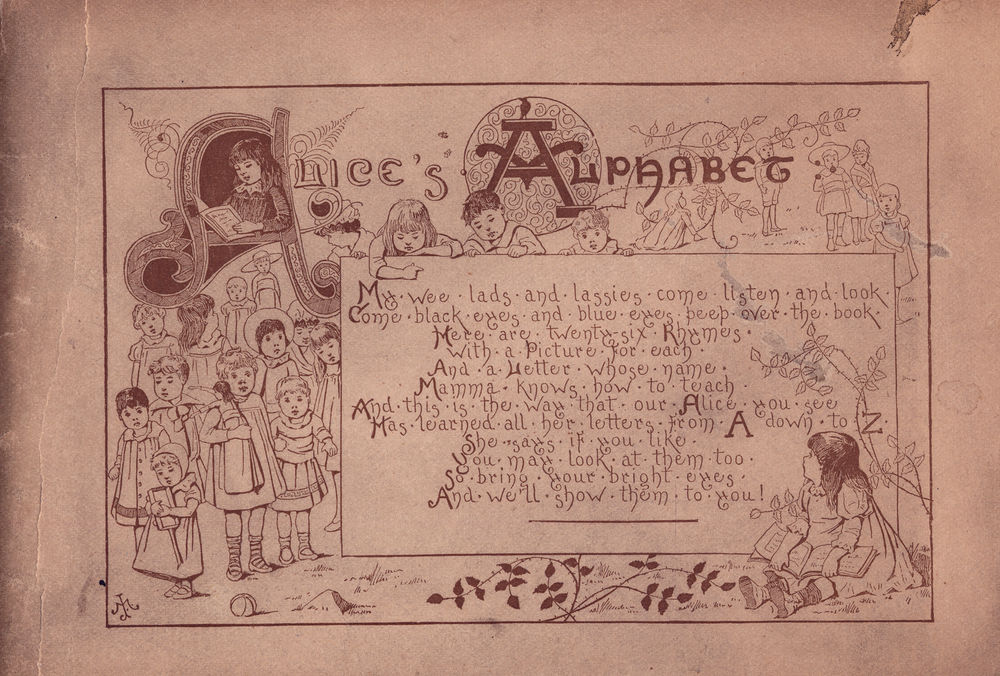 Alice's Alphabet
My · wee · lads · and · lassies · come · listen · and · look ·
Come · black · eyes · and · blue · eyes · peep · over · the · book ·
Here · are · twenty-six · Rhymes ·
With · a · Picture · for · each ·
And · a · Letter · whose · name ·
Mamma · knows · how · to · teach ·
And · this · is · the · way · that · our · Alice · you · see ·
Has · learned · all · her · letters · from · A · down · to · Z ·
She · says · if · you · like ·
You · may · look · at · them · too ·
So · bring · your · bright · eyes ·
And · we'll · show · them · to · you!